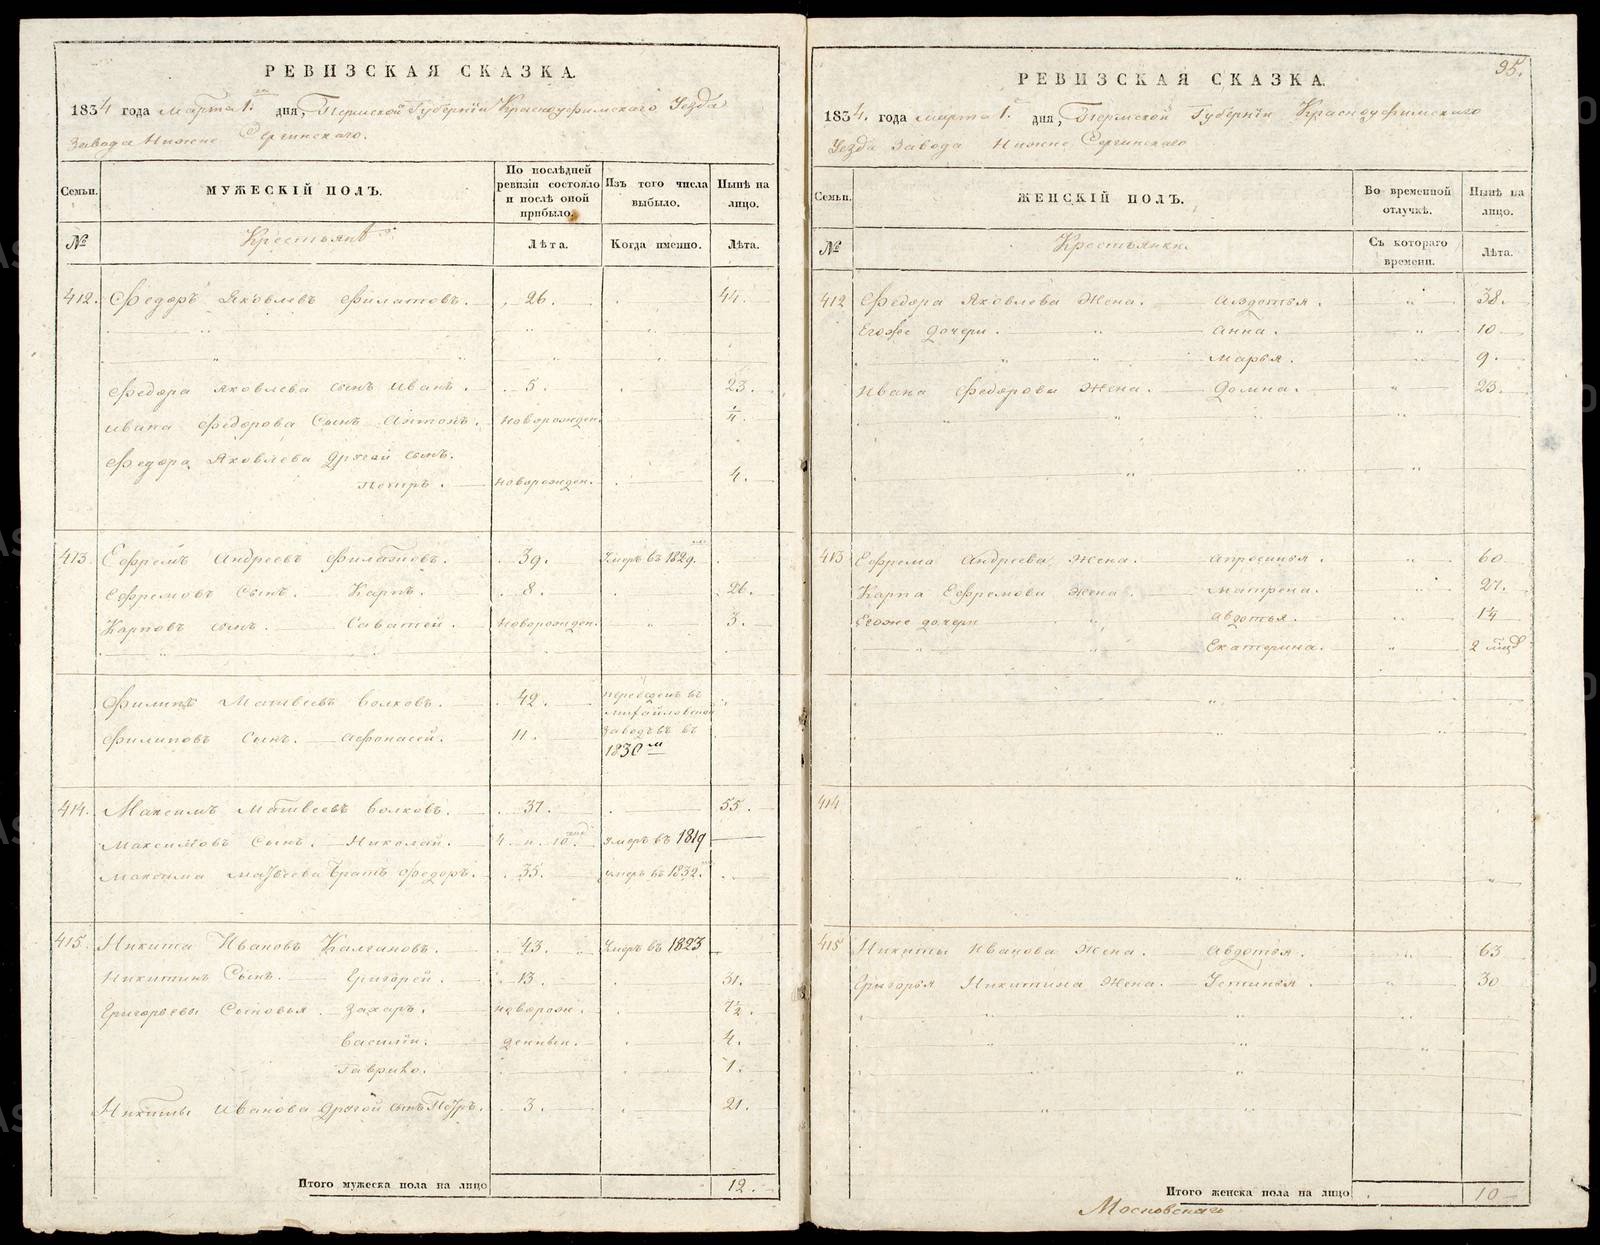 РЕВИЗСКАЯ СКАЗКА.
1834 года марта 1. дня, Пермской Губерніи Красноуфимскаго Уезда
Завода Нижне Сергинскаго.
Семьи.
МУЖЕСКІЙ ПОЛЪ.
По послѣдней ревизіи состояло и послѣ оной прибыло.
Изъ того числа выбыло.
Нынѣ на лицо.
№
Крестьянъ
Лѣта.
Когда именно.
Лѣта.
412. Федоръ Яковлевъ Филатовъ. 26. 44.
Федора Яковлева сынъ Иванъ. 5. 23.
Ивана Федорова Сынъ Антонъ. новорожден. 1/4.
Федора Яковлева другой сынъ.
Петръ. новорожден. 4.
413 Ефремъ Андреевъ Филатовъ. 39. Умеръ въ 1829.
Ефремовъ Сынъ. Карпъ. 8. 26.
Карповъ сынъ. Саватей. новорожден. 3.
Филипъ Матвеевъ Волковъ. 42. переведенъ въ
Михайловской
Филиповъ Сынъ. Афонасей. 11. Заводъ въ
1830 м
414. Максимъ Матвеевъ Волковъ. 37. 55.
Максимовъ Сынъ. Николай. 4 н. 10. умеръ въ 1819
Максима Матвеева братъ Федоръ. 35. умеръ въ 1832.
415. Никита Ивановъ Калгановъ. 43. Умеръ въ 1823
Никитинъ Сынъ. Григорей. 13. 31.
Григорьевы Сыновья. Захаръ. новорож. 7 1/2.
Василіи. денныи. 4.
Гаврило. 1.
Никиты Иванова другой сынъ Петръ. 3. 21.
Итого мужеска пола на лицо 12.
95.
РЕВИЗСКАЯ СКАЗКА.
1834. года марта 1. дня, Пермской Губерніи Красноуфимскаго
Уезда Завода Нижне Сергинскаго
Семьи.
ЖЕНСКІЙ ПОЛЪ.
Во временной отлучкѣ.
Нынѣ на лицо.
№
Крестьянки.
Съ котораго времени.
Лѣта.
412 Федора Яковлева Жена. Авдотья. 38.
Егоже дочери. Анна. 10
Марья. 9.
Ивана Федорова Жена. Домна. 23.
413 Ефрема Андреева жена. Апросинья. 60
Карпа Ефремова жена. Матрена. 27.
Егоже дочери Авдотья. 1 1/4
Екатерина. 2 мцд
414
415 Никиты Иванова Жена. Авдотья. 63
Григорья Никитина Жена. Устинья. 30
Итого женска пола на лицо 10
Московскаго